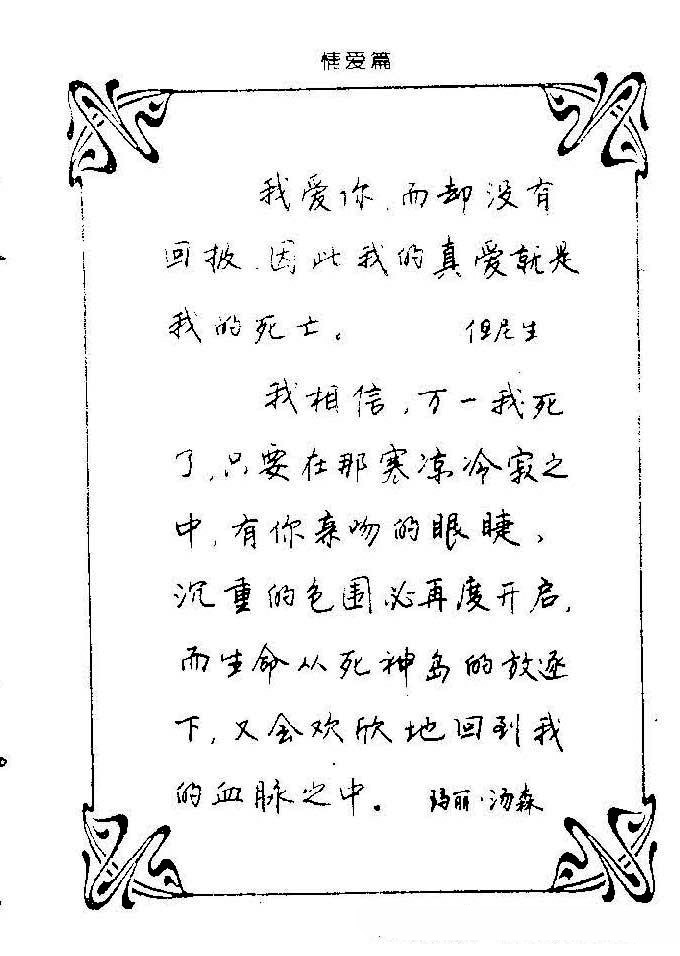 情爱篇
我爱你,而却没有
回报,因此我的真爱就是
我的死亡。 但尼生
我相信,万一我死
了,只要在那寒凉冷寂之
中,有你亲吻的眼睫,
沉重的包围必再度开启,
而生命从死神岛的放逐
下,又会欢欣地回到我
的血脉之中。 玛丽·汤森